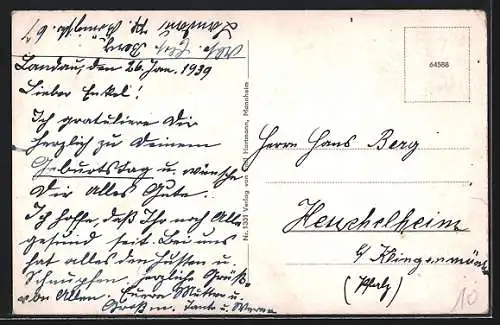 Landau, den 26. Jan. 1939
Lieber Enkel!
Ich gratuliere Dir
herzlich zu Deinem
Geburtstag u. wünsche
Dir alles Gute.
Ich hoffe, daß Ihr noch Alle
gesund seit. Bei uns
hat alles den Husten u.
Schnupfen. Herzliche Grüße
von Allen. Eure Mutter u.
Großm. Tante u.
Nr. 5301 Verlag von Hartmann, Mannheim
64588
Herrn Hans Berg
Heuchelheim
b/ Klingenmünster
(Pfalz)
10